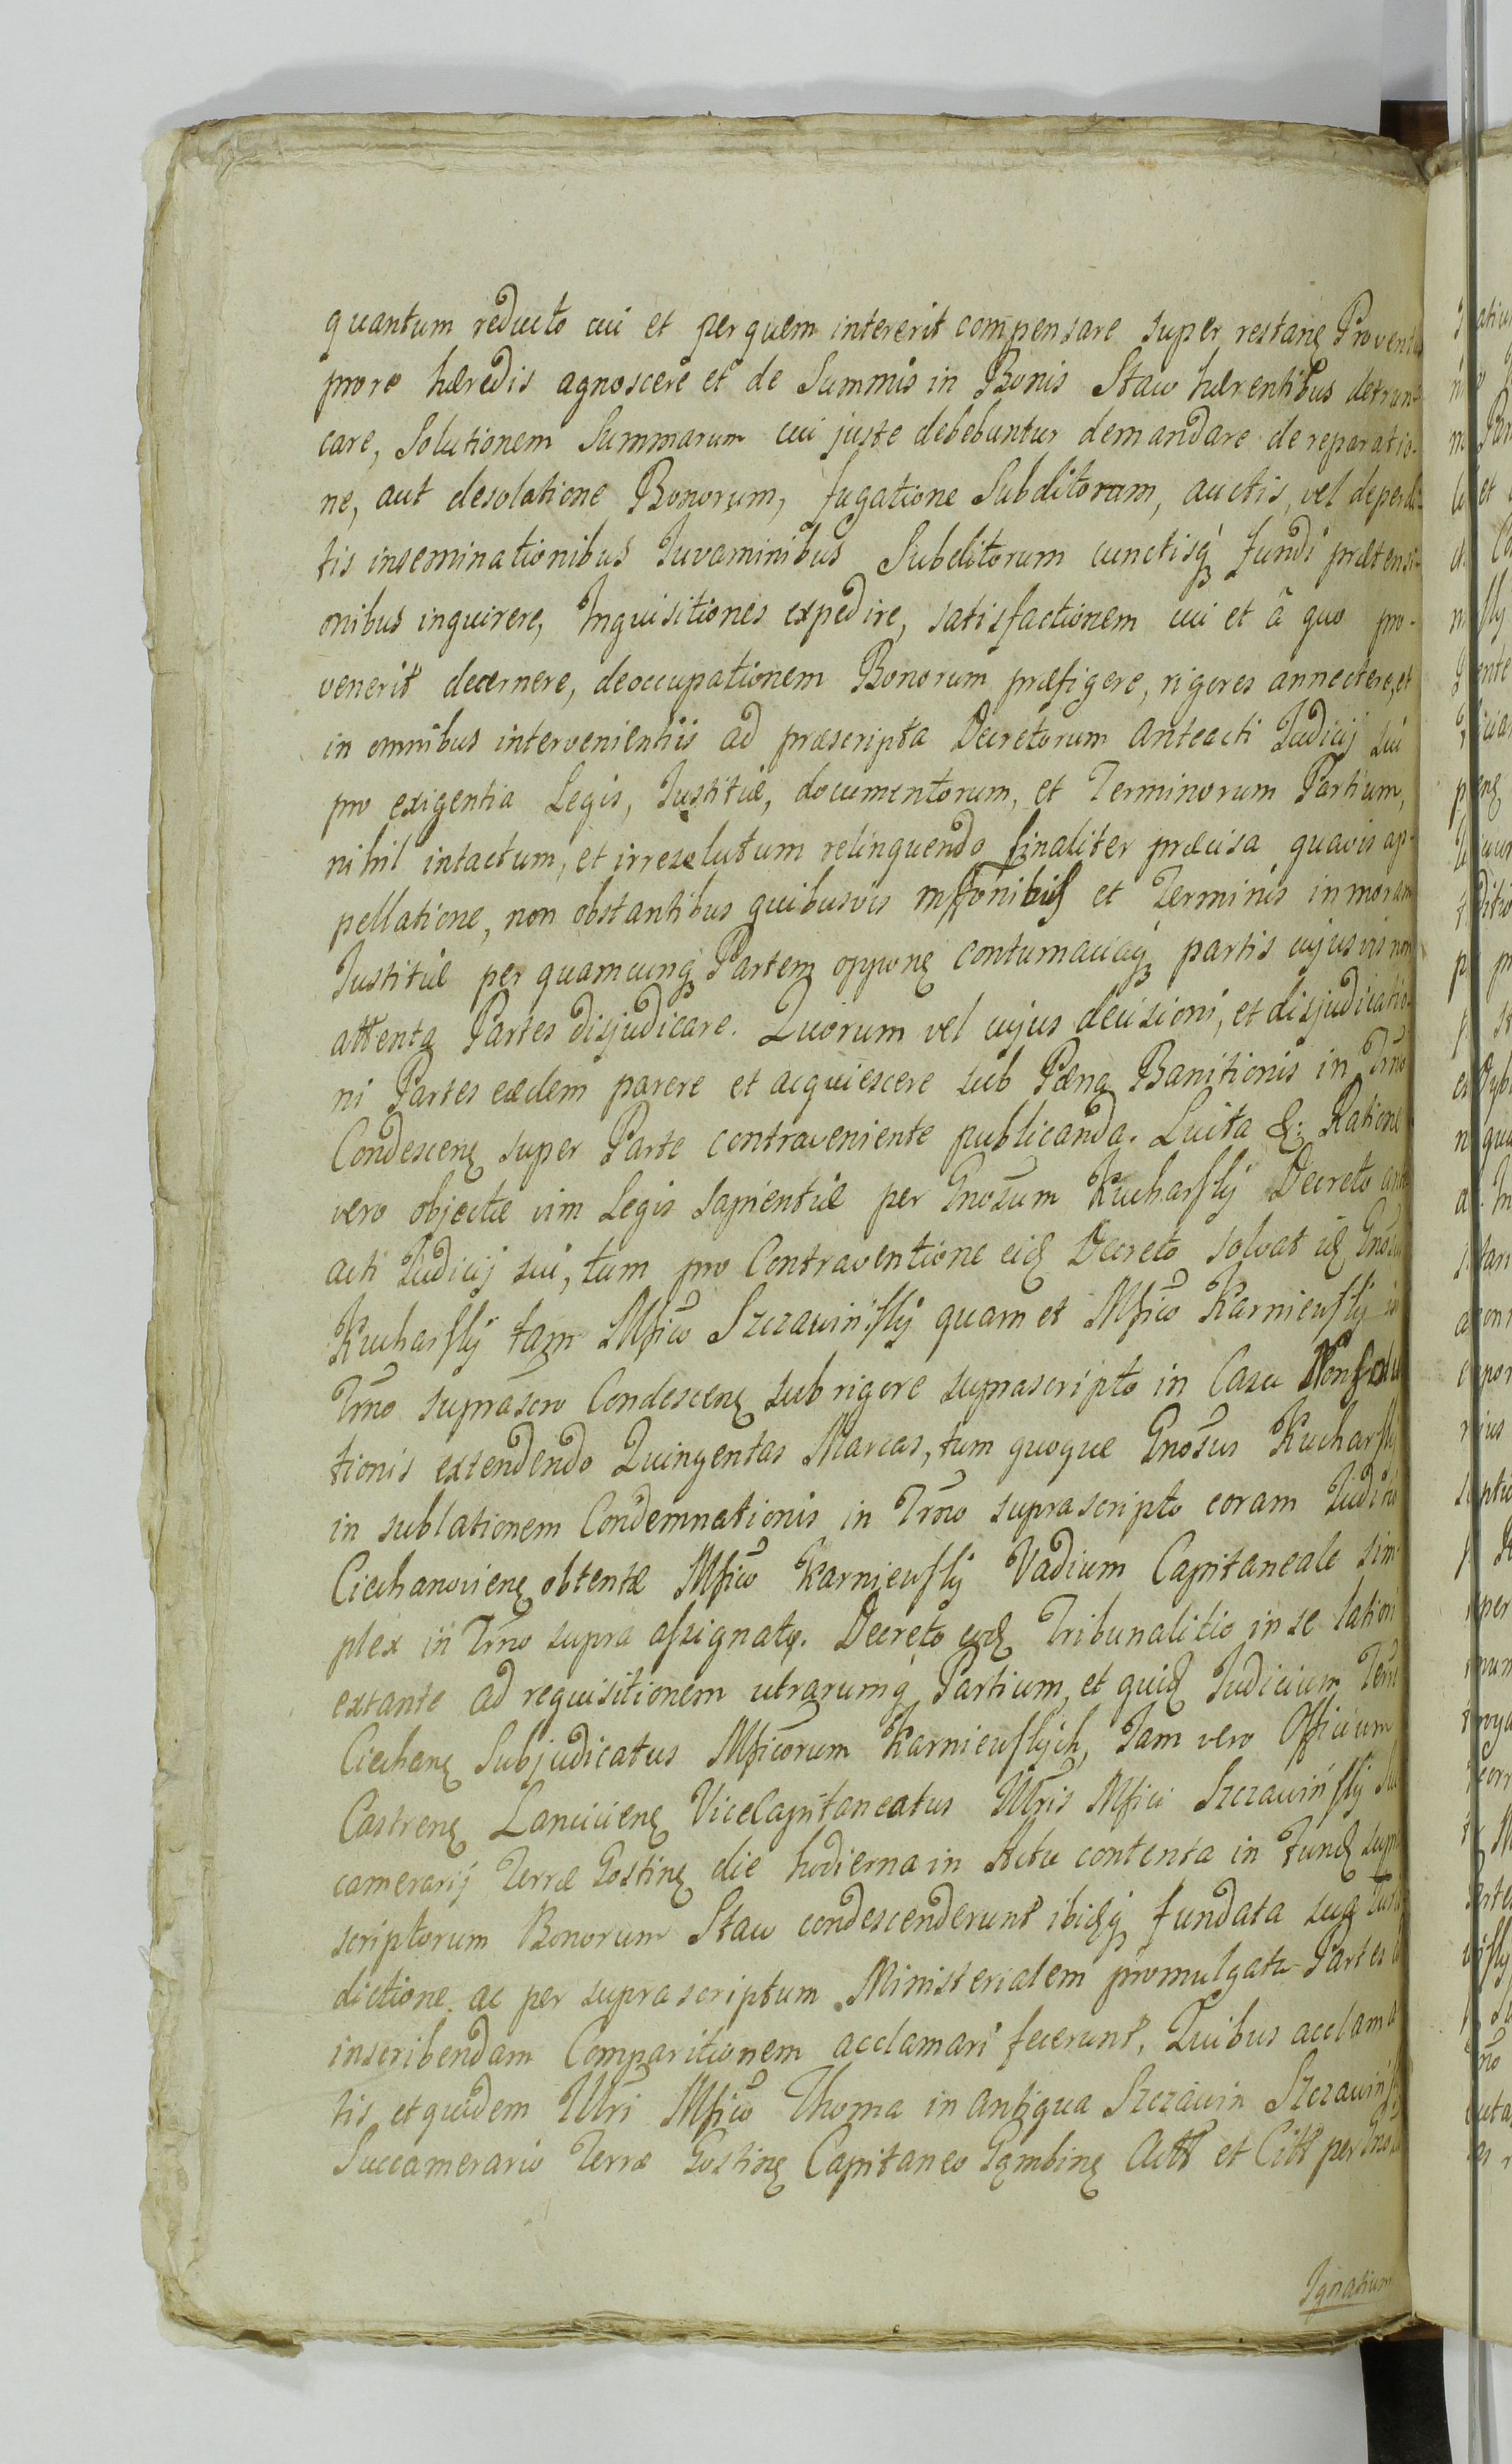 quantum reducto cui et per quem intererit compensare super restanę Proventu
prore hæredis agnoscere et de Summis in Bonis Staw hærentibus detrun-
care, Solutionem Summarum cui juste debebuntur demandare de reparatio-
ne, aut desolatione Bonorum, fugatione Subditorum, auctis, vel deperdi-
tis inseminationibus Juvaminibus Subditorum cunctisq́ fundi prætensi-
onibus inquirere, Inquisitiones expedire, satisfactionem cui et â quo pro-
venerit decernere, deoccupationem Bonorum præfigere, rigores annectere, et
in omnibus intervenientiis ad præscripta Decretorum anteacti Judicij sui
pro exigentia Legis, Justitiæ, documentorum, et Terminorum Partium,
nihil intactum, et irresolutum relinquendo finaliter præcisa quavis ap-
pellatione, non obstantibus quibusvis mffonibus et Terminis in moram
Justitiæ per quamcunq Partem opponę contumaciaq́ partis cujusvis non
attenta Partes disjudicare. Quorum vel cujus decisioni, et disjudicatio-
ni Partes eædem parere et acquiescere sub Pæna Banitionis in Tr̃no
Condescenę super Parte contraveniente publicanda. Luita &. Ratione
vero objectæ vim Legis sapientiæ per Gnosum Kucharsky Decreto ante
acti Judicij sui, tum pro Contraventione eidę Decreto solvat idę Gnosus
Kucharsky tam Mfico Szczawinsky quam et Mfico Karniewsky in
Tr̃no suprascro Condescenę sub rigore suprascripto in Casu Non solu
tionis extendendo Quingentas Marcas, tum quoque Gnosus Kucharsky
in sublationem Condemnationis in Tr̃no suprascripto coram Judicio
Ciechanovienę obtentæ Mfico Karniewsky Vadium Capitaneale sim-
plex in Tr̃no supra assignato. Decreto eodę Tribunalitio in se latiori
extante ad requisitionem utrarumq́ Partium, et quidę Judicium Terre
Ciechanę Subjudicatus Mficorum Karniewskych, Jam vero Officium
Castrenę Lancicienę ViceCapitaneatus Illris Mfici Szczawinsky Suc
camerarij Terræ Gostinę die hodierna in Actu contenta in Fundę supra
scriptorum Bonorum Staw condescenderunt ibidęq́ fundata sua Juris
dictione ac per suprascriptum Ministerialem promulgata Partes ad
inscribendam Comparitionem acclamari fecerunt. Quibus acclama
tis, et quidem Illri Mfico Thoma in antiqua Szczawin Szczawinsky
Succamerario Terræ Gostinę Capitaneo Gąmbinę Actt et Citt per Gnosum
Ignatium